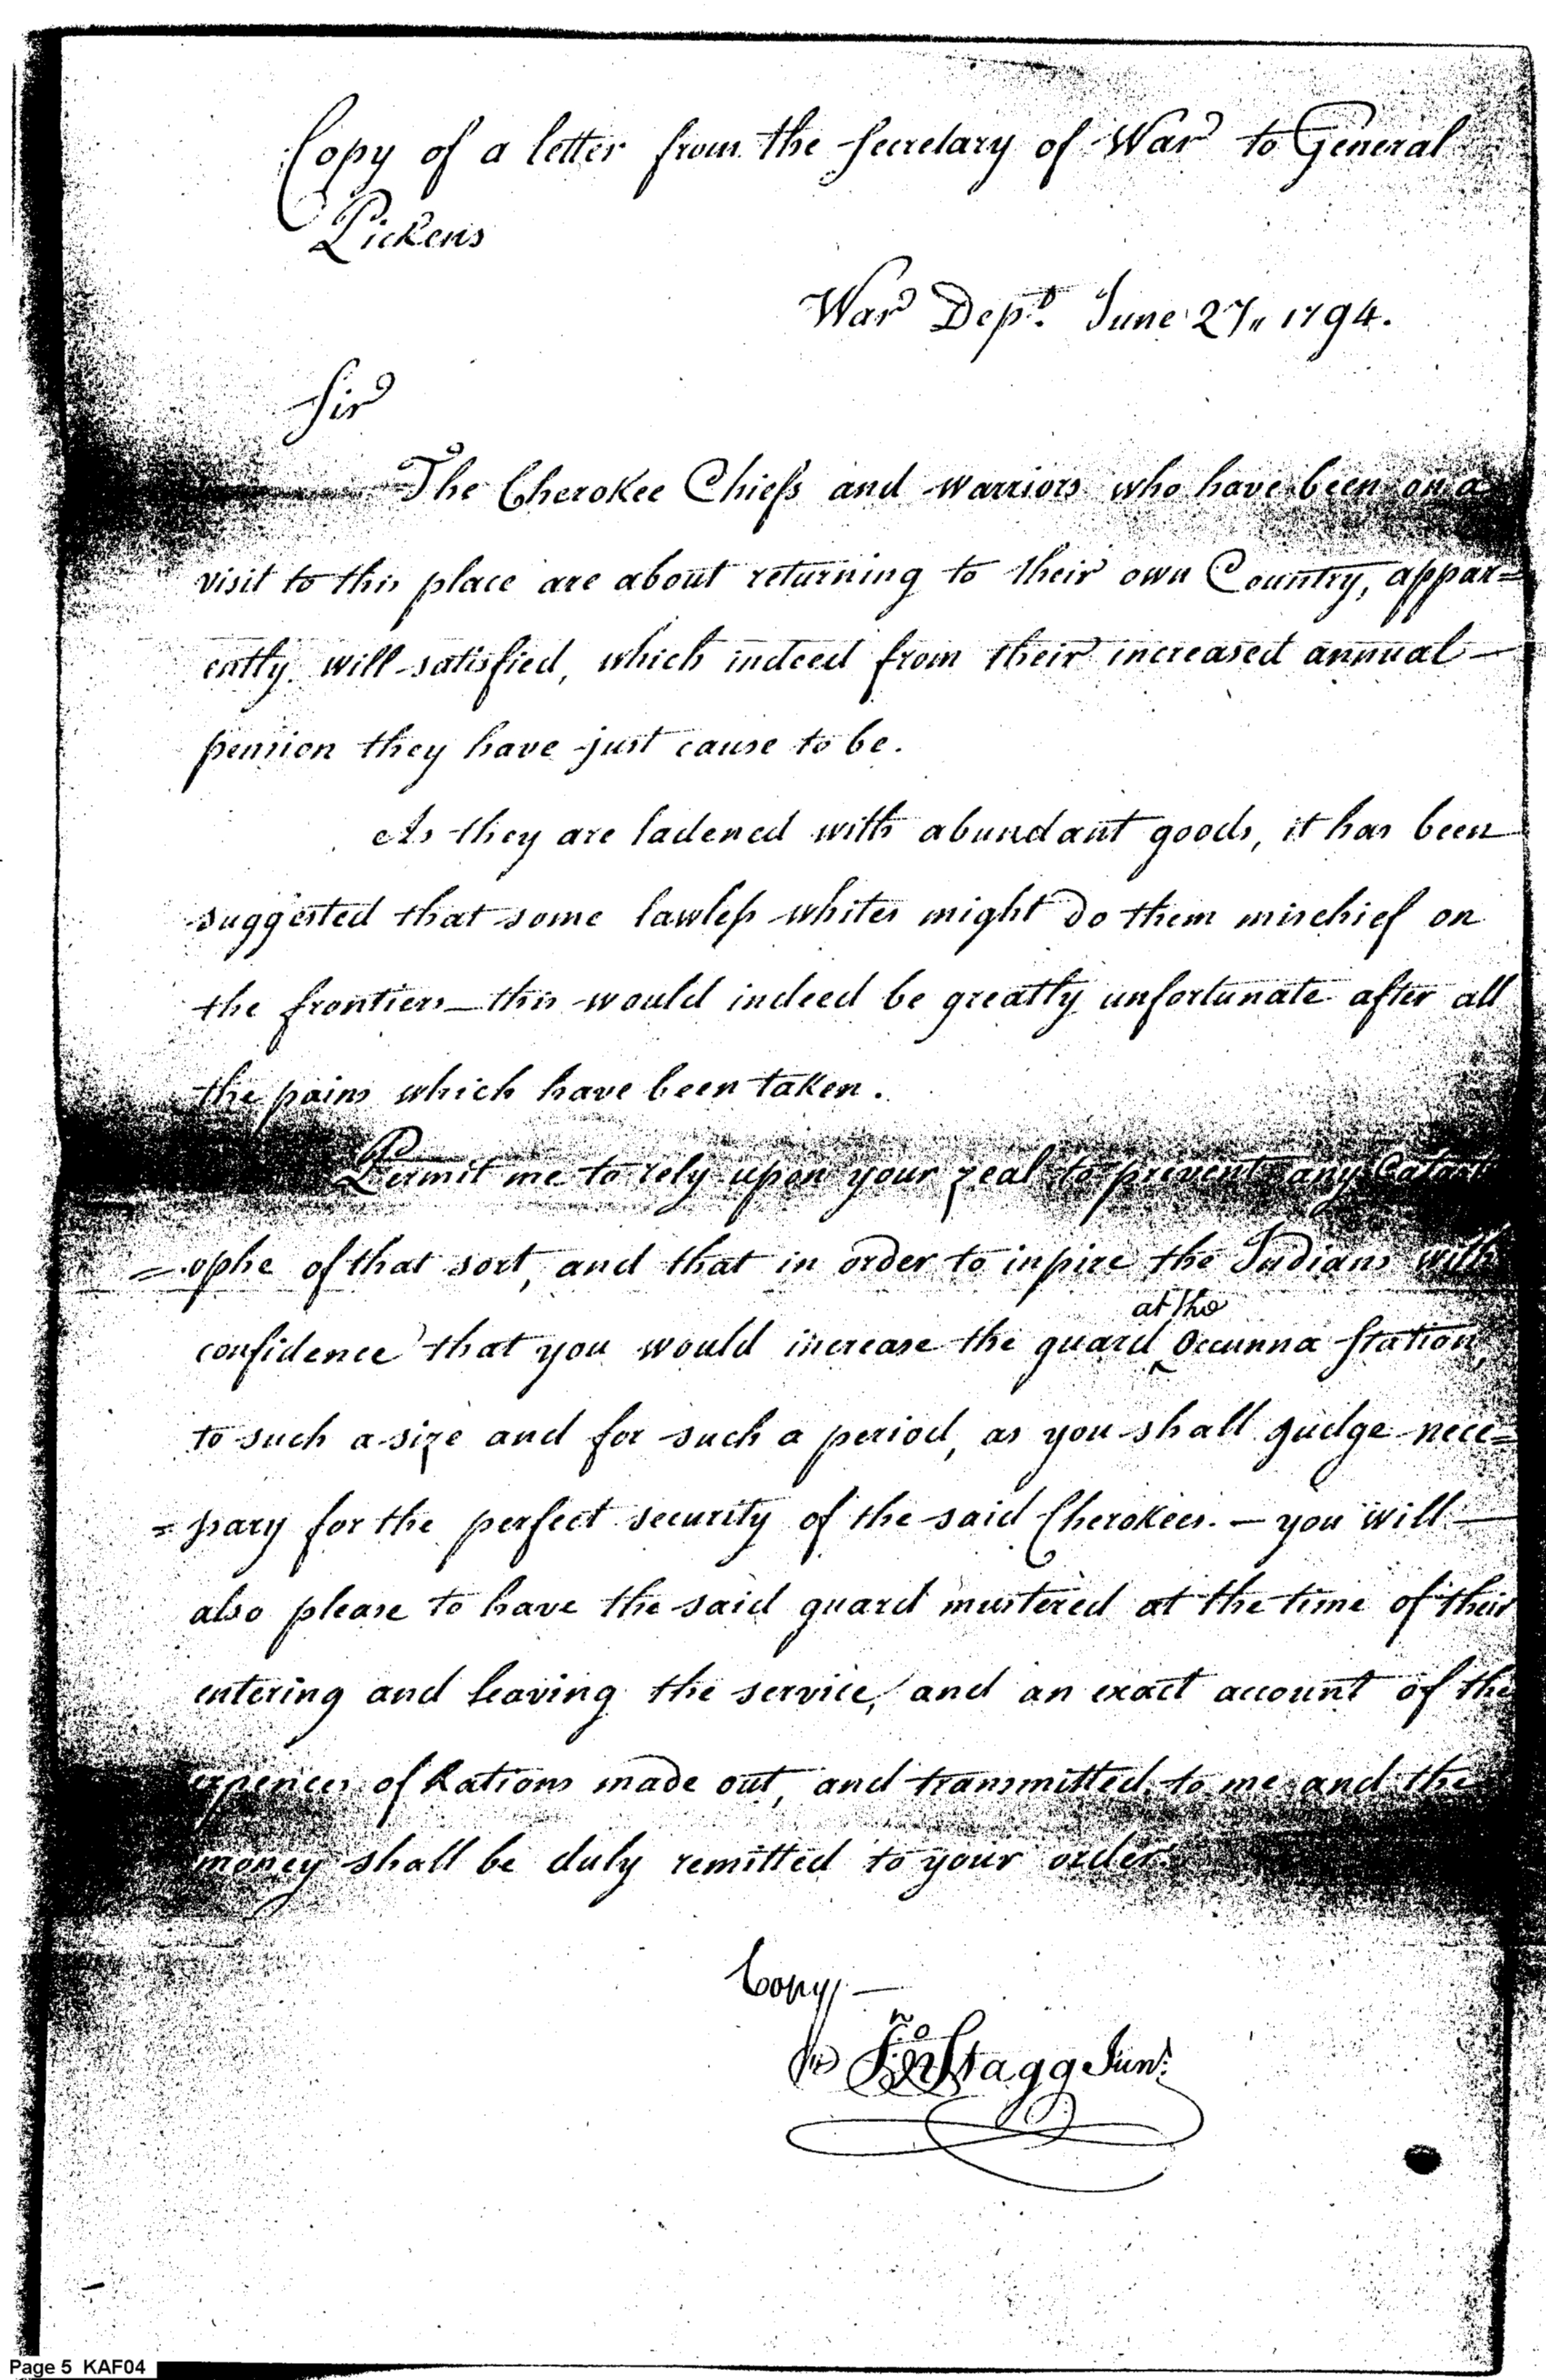 Copy of a letter from the Secretary of War to General
Pickens
War Dept. June 27,, 1794.
Sir
The Cherokee Chiefs and warriors who have been on a
visit to this place are about returning to their own Country, appar=
ently will satisfied, which indeed from their increased annual —
pension they have just cause to be.
As they are ladened with abundant goods, it has been
suggested that some lawless whites might do them mischief on
the frontiers — this would indeed be greatly unfortunate after all
the pains which have been taken.
Permit me to rely upon your zeal to prevent any Catast
=ophe of that sort, and that in order to inspire the Indians with
at the
confidence that you would increase the guard ^ Occunna Station,
to such a size and for such a period, as you shall judge nece=
=ssary for the perfect security of the said Cherokees. — you will —
also please to have the said guard mustered at the time of their
entering and leaving the service, and an exact account of the
expences of Rations made out, and transmitted to me and the
money shall be duly remitted to your order.
Copy —
Jno Stagg Junr.
Page 5 KAF04